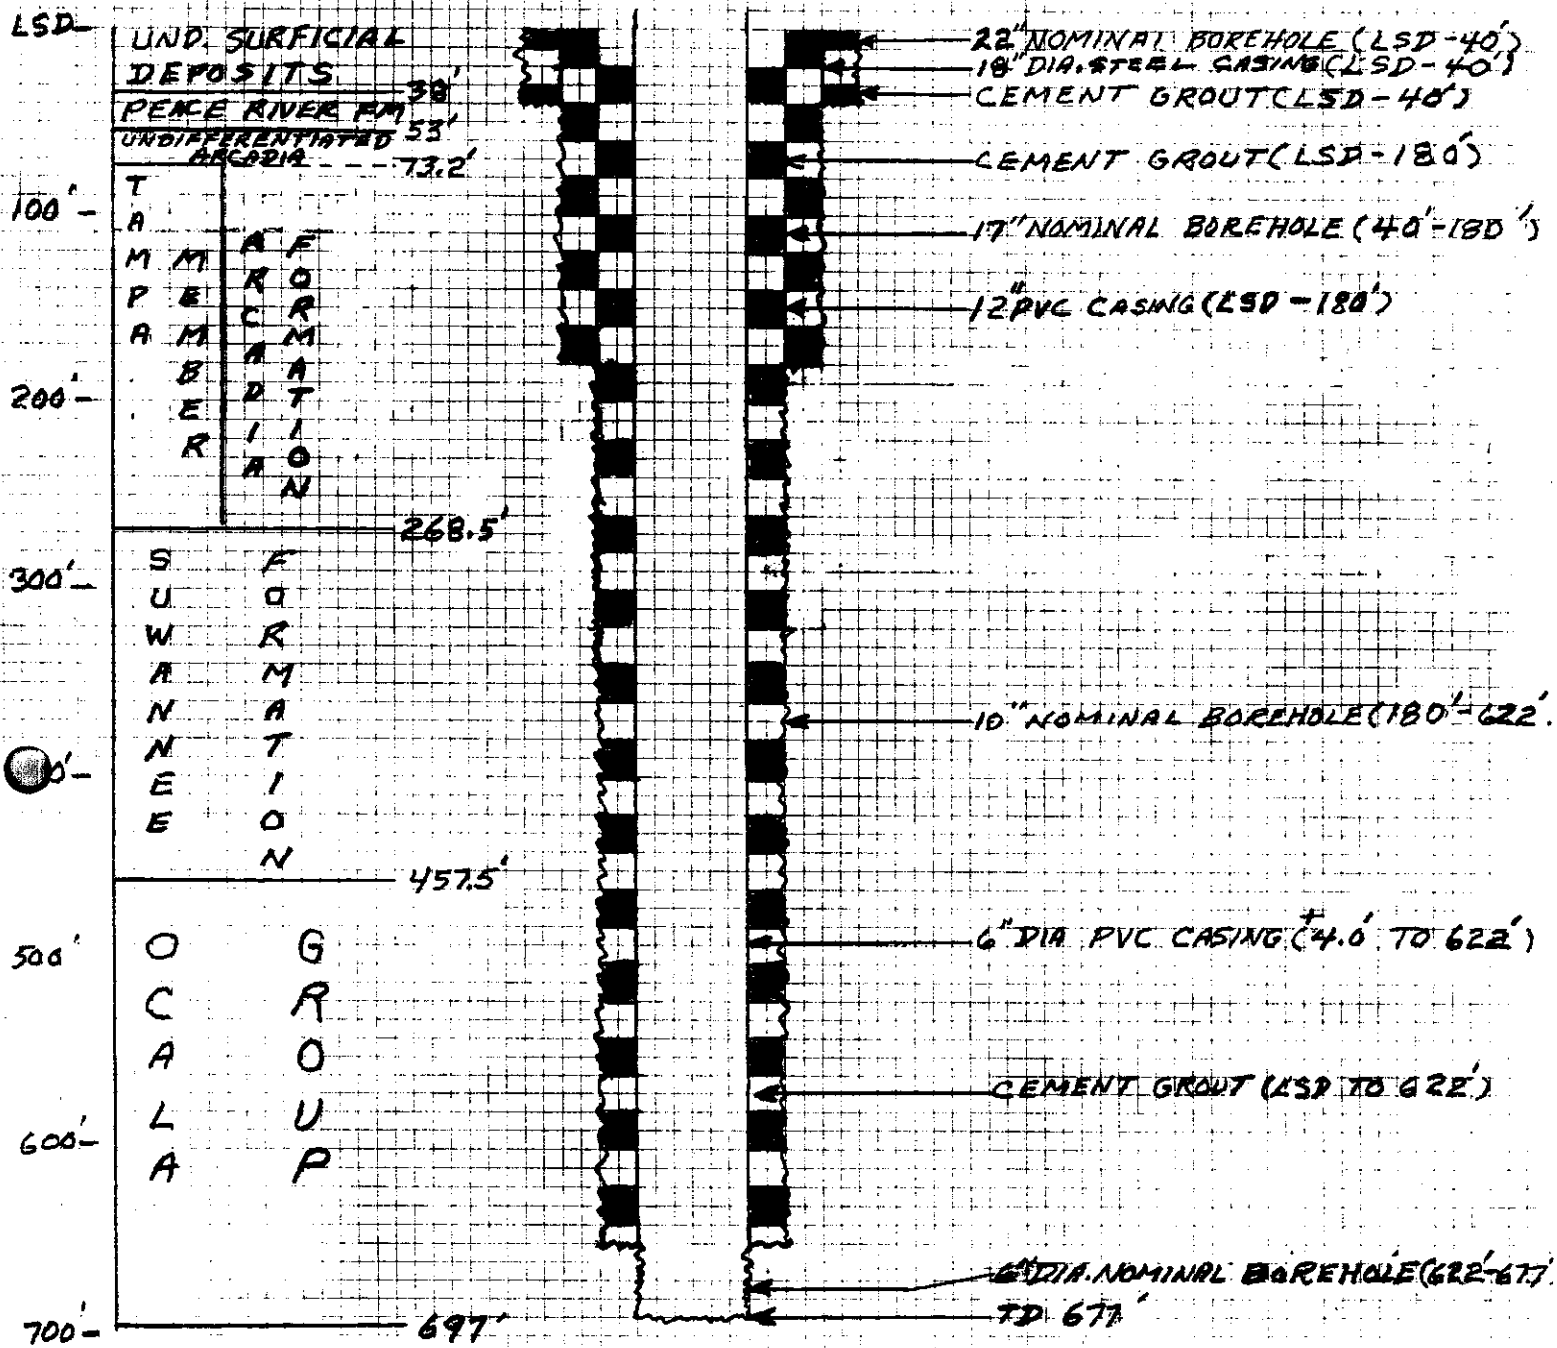 LSD
UND. SURFICIAL
DEPOSITS
38'
PEACE RIVER FM
53'
UNDIFFERENTIATED
ARCADIA
73.2'
TAMPA
MEMBER
ARCADIA
FORMATION
268.5'
SUWANNEE
FORMATION
457.5'
OCALA
GROUP
697'
100'
200'
300'
0'
500'
600'
700'
22" NOMINAL BOREHOLE (LSD-40')
18" DIA. STEEL CASING (LSD-40')
CEMENT GROUT (LSD-40')
CEMENT GROUT (LSD-180')
17" NOMINAL BOREHOLE (40'-180')
12" PVC CASING (LSD-180')
10" NOMINAL BOREHOLE (180'-622'
6" DIA PVC CASING (+4.0' TO 622')
CEMENT GROUT (LSD TO 622')
6" DIA. NOMINAL BOREHOLE (622'-677'
TD 677'